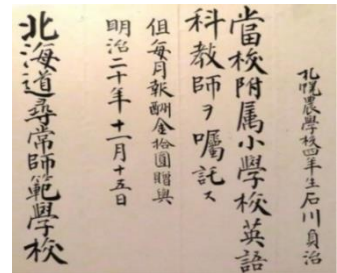 札幌農學校四年生石川貞治
當校附属小學校英語
科教師ヲ囑託ス
但每月報酬金拾圓贈與
明治二十年十一月十五日
北海道尋常師範學校